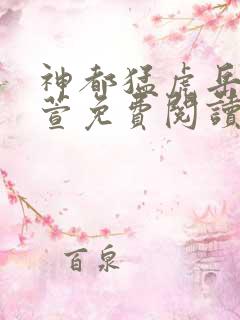 神都猛虎岳
萱免費閱讀
百泉